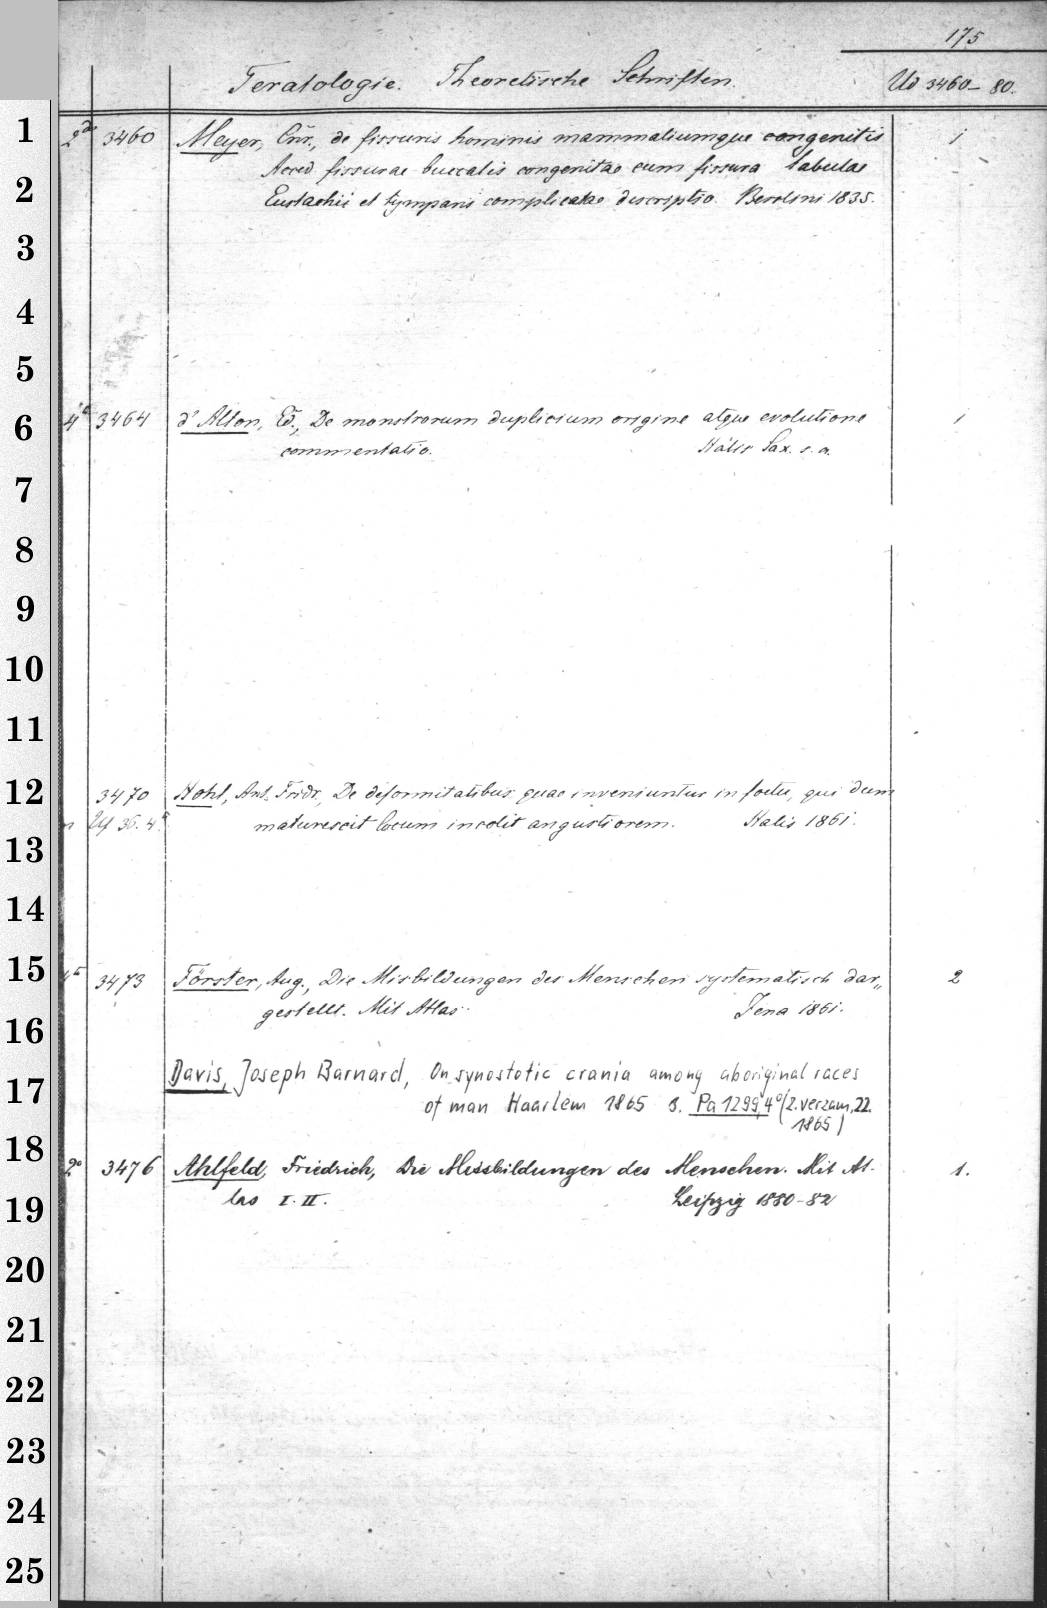 175
Teratologie. Theoretische Schriften.
Ud 3460-80.
1
2do 3460 Meyer, Enr., de fissuris hominis mammaliumque congenitis 1
2
Acced fissurae buccalis congenitae cum fissura tabulae
Eustachii et tympani complicatae descriptio. Berolini 1835.
3
4
5
6
4to 3464 d'Alton, Ed., De monstrorum duplicium origine atque evolutione 1
commentatio. Halis Sax. s. a.
7
8
9
10
11
12
3470 Hohl, Ant. Fridr., De deformitatibus quae inveniuntur in foetu, qui dum
Uf 36. 4o maturescit locum incolit angustiorem. Halis 1861.
13
14
15
3473 Förster, Aug., Die Misbildungen des Menschen systematisch dar„ 2
gestellt. Mit Atlas. Jena 1861.
16
17
Davis, Joseph Barnard, On synostotic crania among aboriginal races
of man Haarlem 1865 s. Pa 1299, 4o (2. verzam, 22.
1865)
18
2o 3476 Ahlfeld, Friedrich, Die Missbildungen des Menschen. Mit At- 1.
las I. II. Leipzig 1880-82
19
20
21
22
23
24
25